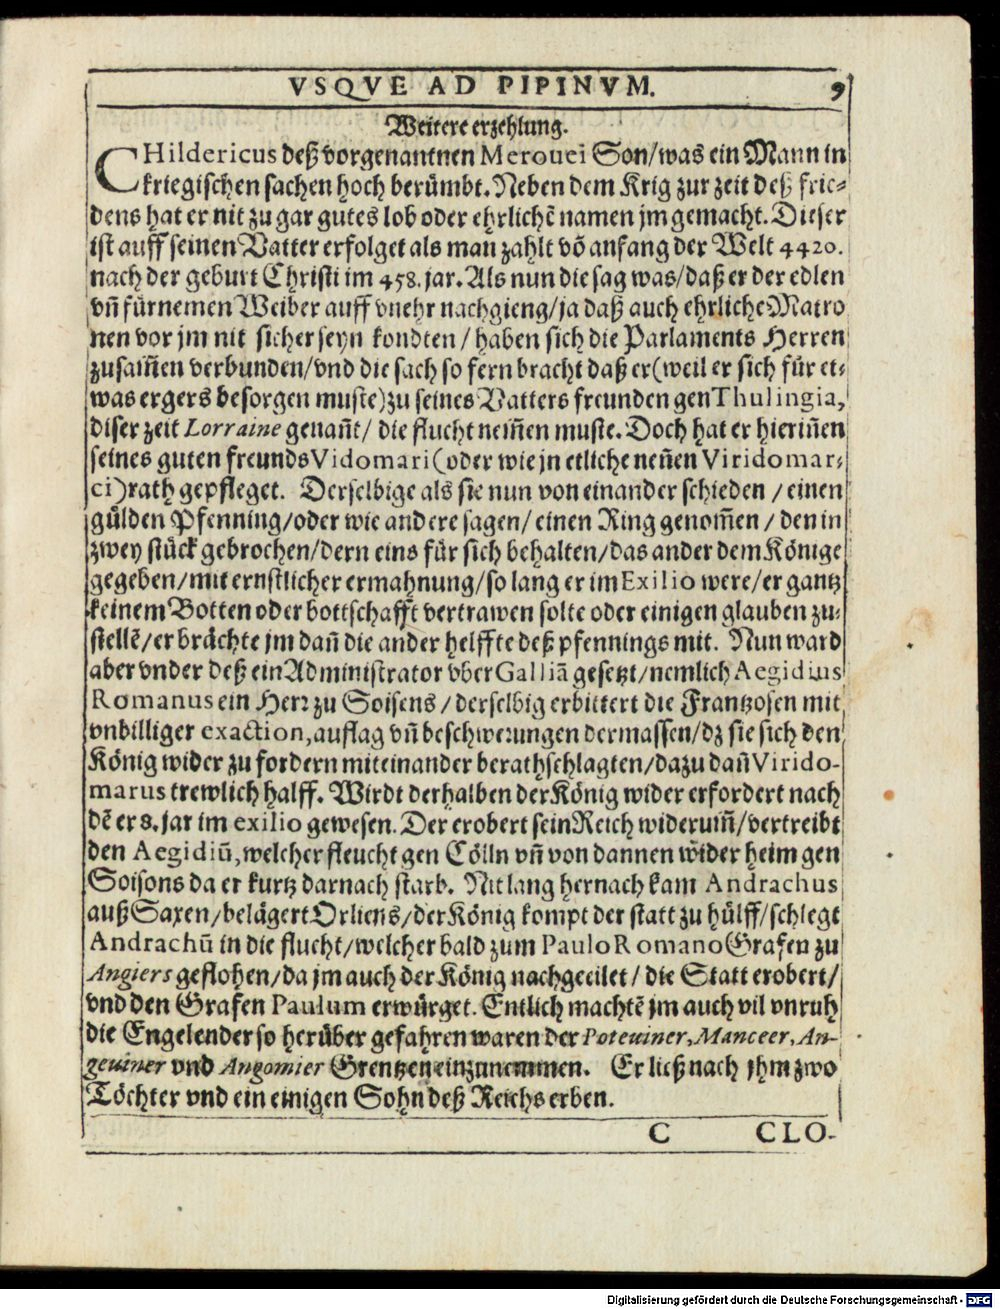 VSQVE AD PIPINVM. 9
Weitere erzehlung.
CHildericus deß vorgenantnen Merouei Son/was ein Mann in
kriegischen sachen hoch berümbt. Neben dem Krig zur zeit deß frie-
dens hat er nit zu gar gutes lob oder ehrlichē namen jm gemacht. Dieser
ist auff seinen Vatter erfolget als man zahlt vō anfang der Welt 4420.
nach der geburt Christi im 458. jar. Als nun die sag was/daß er der edlen
vñ fürnemen Weiber auff vnehr nachgieng/ja daß auch ehrliche Matro
nen vor jm nit sicher seyn kondten/haben sich die Parlaments Herren
zusam̃en verbunden/vnd die sach so fern bracht daß er(weil er sich für et-
was ergers besorgen muste)zu seines Vatters freunden gen Thulingia,
diser zeit Lorraine genañt/ die flucht nem̃en muste. Doch hat er hieriñen
seines guten freunds Vidomari(oder wie jn etliche neñen Viridomar-
ci)rath gepfleget. Derselbige als sie nun von einander schieden/einen
gülden Pfenning/oder wie andere sagen/einen Ring genom̃en/den in
zwey stück gebrochen/dern eins für sich behalten/das ander dem Könige
gegeben/mit ernstlicher ermahnung/so lang er im Exilio were/er gantz
keinem Botten oder bottschafft vertrawen solte oder einigen glauben zu-
stellē/er brächte jm dañ die ander helffte deß pfennings mit. Nun ward
aber vnder deß ein Administrator vber Galliā gesetzt/nemlich Aegidius
Romanus ein Herr zu Soisens/derselbig erbittert die Frantzosen mit
vnbilliger exaction, auflag vñ beschwerungen dermassen/dz sie sich den
König wider zu fordern miteinander berathschlagten/dazu dañ Virido-
marus trewlich halff. Wirdt derhalben der König wider erfordert nach
dē er 8. jar im exilio gewesen. Der erobert sein Reich widerum̃/vertreibt
den Aegidiū, welcher fleucht gen Cölln vñ von dannen wider heim gen
Soisons da er kurtz darnach starb. Nit lang hernach kam Andrachus
auß Saxen/belägert Orliens/der König kompt der statt zu hülff/schlegt
Andrachū in die flucht/welcher bald zum Paulo Romano Grafen zu
Angiers geflohen/da jm auch der König nachgeeilet/die Statt erobert/
vnd den Grafen Paulum erwürget. Entlich machtē jm auch vil vnruh
die Engelender so herüber gefahren waren der Poteuiner, Manceer, An-
geuiner vnd Angomier Grentzen einzunemmen. Er ließ nach jhm zwo
Töchter vnd ein einigen Sohn deß Reichs erben.
C CLO-
Digitalisierung gefördert durch die Deutsche Forschungsgemeinschaft - DFG